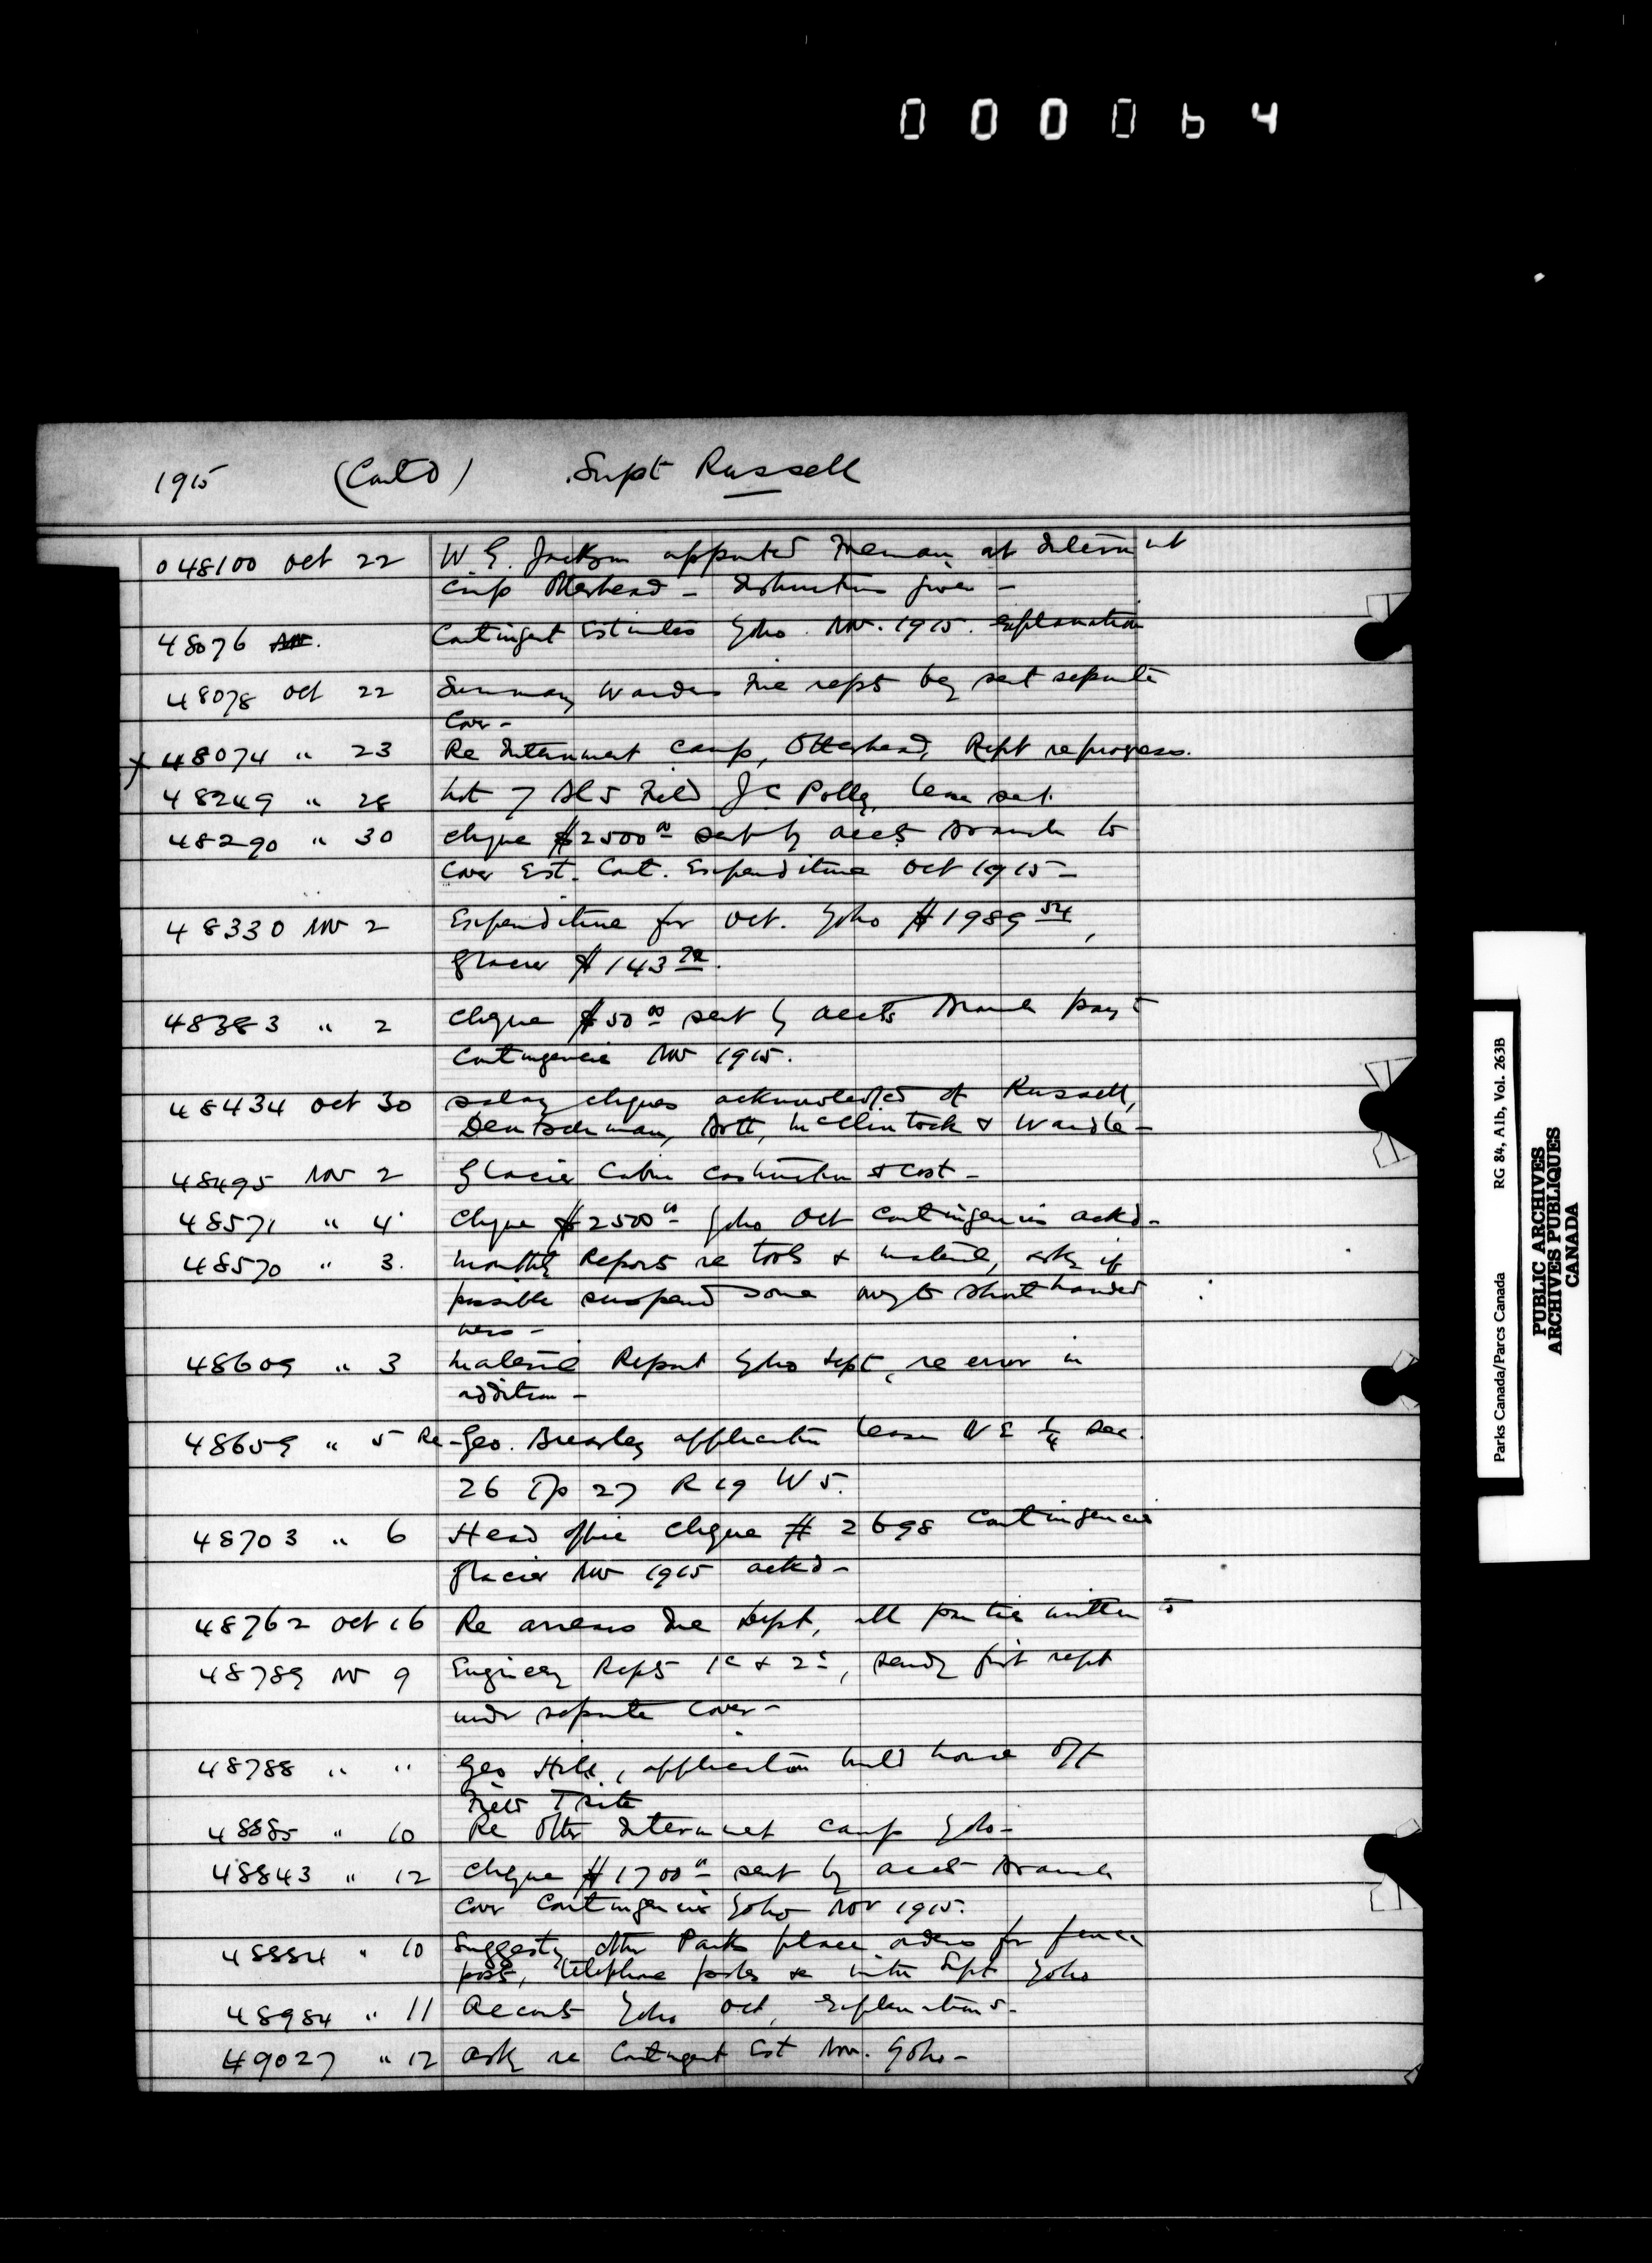 000064
1915 (Contd) Supt Russell
048100 Oct 22 W. G. Jackson appointed Foreman at Internmt
Camp Otterhead - Instructions given -
48076 Contingent Estimates Yoho Nov. 1915. Explanation
48078 Oct 22 Summary Warden Fire repts beg sent separate
Cover -
x 48074 " 23 Re Internment Camp, Otterhead, Rept re progress.
48249 " 28 Lot 7 Bl 5 Field J C Polly, lease sent.
48290 " 30 Cheque $2500 00 sent by accts Branch to
cover Est. Cont. Expenditure Oct 1915 -
48330 Nov 2 Expenditure for Oct. Yoho $1989 54,
Glacier $143
48383 " 2 Cheque $50 00 sent by accts Branch payt
Contingencies Nov 1915.
48434 Oct 30 Salary cheques acknowledged of Russell,
Deutschman, Bott, McClintock & Wardle -
48495 Nov 2 Glacier Cabin Construction & Cost -
48571 " 4 Cheque $2500 00 Yoho Oct Contingencies ackd -
48570 " 3. Monthly Reports re tools & material, askg if
possible suspend some owg to short handed
ness -
48609 " 3 Material Report Yoho Sept, re error in
addition -
48659 " 5 Re - Geo. Brearley application lease N E 1/4 Sec.
26 Tp 27 R 19 W 5.
48703 " 6 Head office cheque # 2698 Contingencies
Glacier Nov 1915 ackd -
48762 Oct 16 Re arrears due Dept, all parties written to
48789 Nov 9 Engineerg Repts 1c & 2c, sendg first rept
under separate cover -
48788 " " Geo , application build house off
Field T Site
48885 " 10 Re Otter Internmet Camp Yoho -
48843 " 12 Cheque $1700 00 sent by accts Branch
cover Contingencies Yoho Nov 1915.
48884 " 10 Suggestg other Parks place orders for fence
posts, telephone poles &c with Supt Yoho
48984 " 11 Accounts Yoho Oct, Explanations -
49027 " 12 Askg re Contingent Est Nov. Yoho -
Parks Canada/Parcs Canada RG 84, A1b, Vol. 263B
PUBLIC ARCHIVES
ARCHIVES PUBLIQUES
CANADA